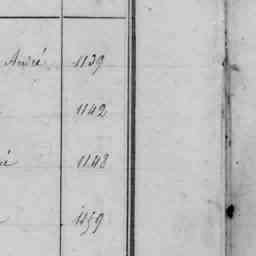 André 1139
1142
1148
1159